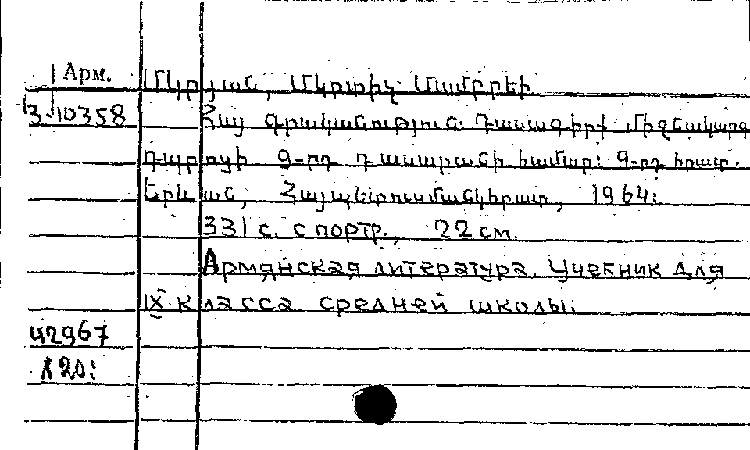 Арм. Մկրյան, Մկրտիչ Մամբրեի
3-10358 Հայ գրականություն: Դասագիրք միջնակարգ
դպրոցի 9-րդ դասարանի համար: 9-րդ հրատ.
Երևան, Հայպետուսմանկհրատ, 1964:
331 с. с портр., 22 см.
Армянская литература. Учебник для
IX класса средней школы.
42967